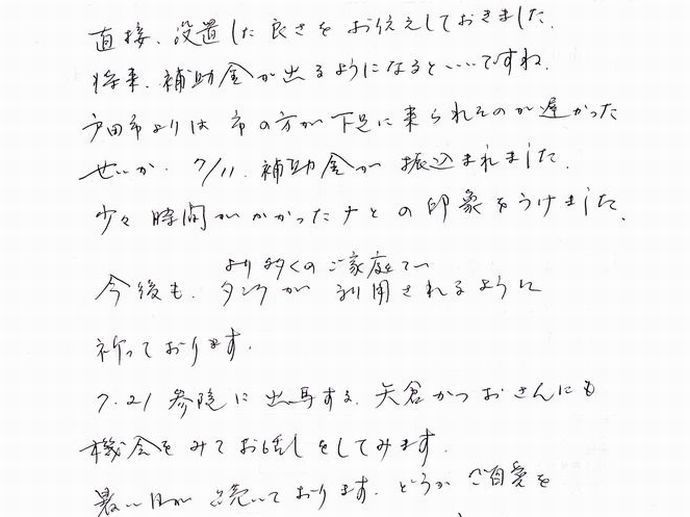 直接、設置した良さをお伝えしておきました。
将来、補助金が出るようになるといいですね。
戸田市よりは市の方が下足に来られそのが遅かった
せいか、7/11、補助金が振込まれました。
少々時間がかかったナとの印象をうけました。
より多くのご家庭で
今後も、タンクが利用されるように
祈っております。
7.21 参院に出馬する、矢倉かつおさんにも
機会をみてお話しをしてみます。
暑い日が続いております。どうかご自愛を